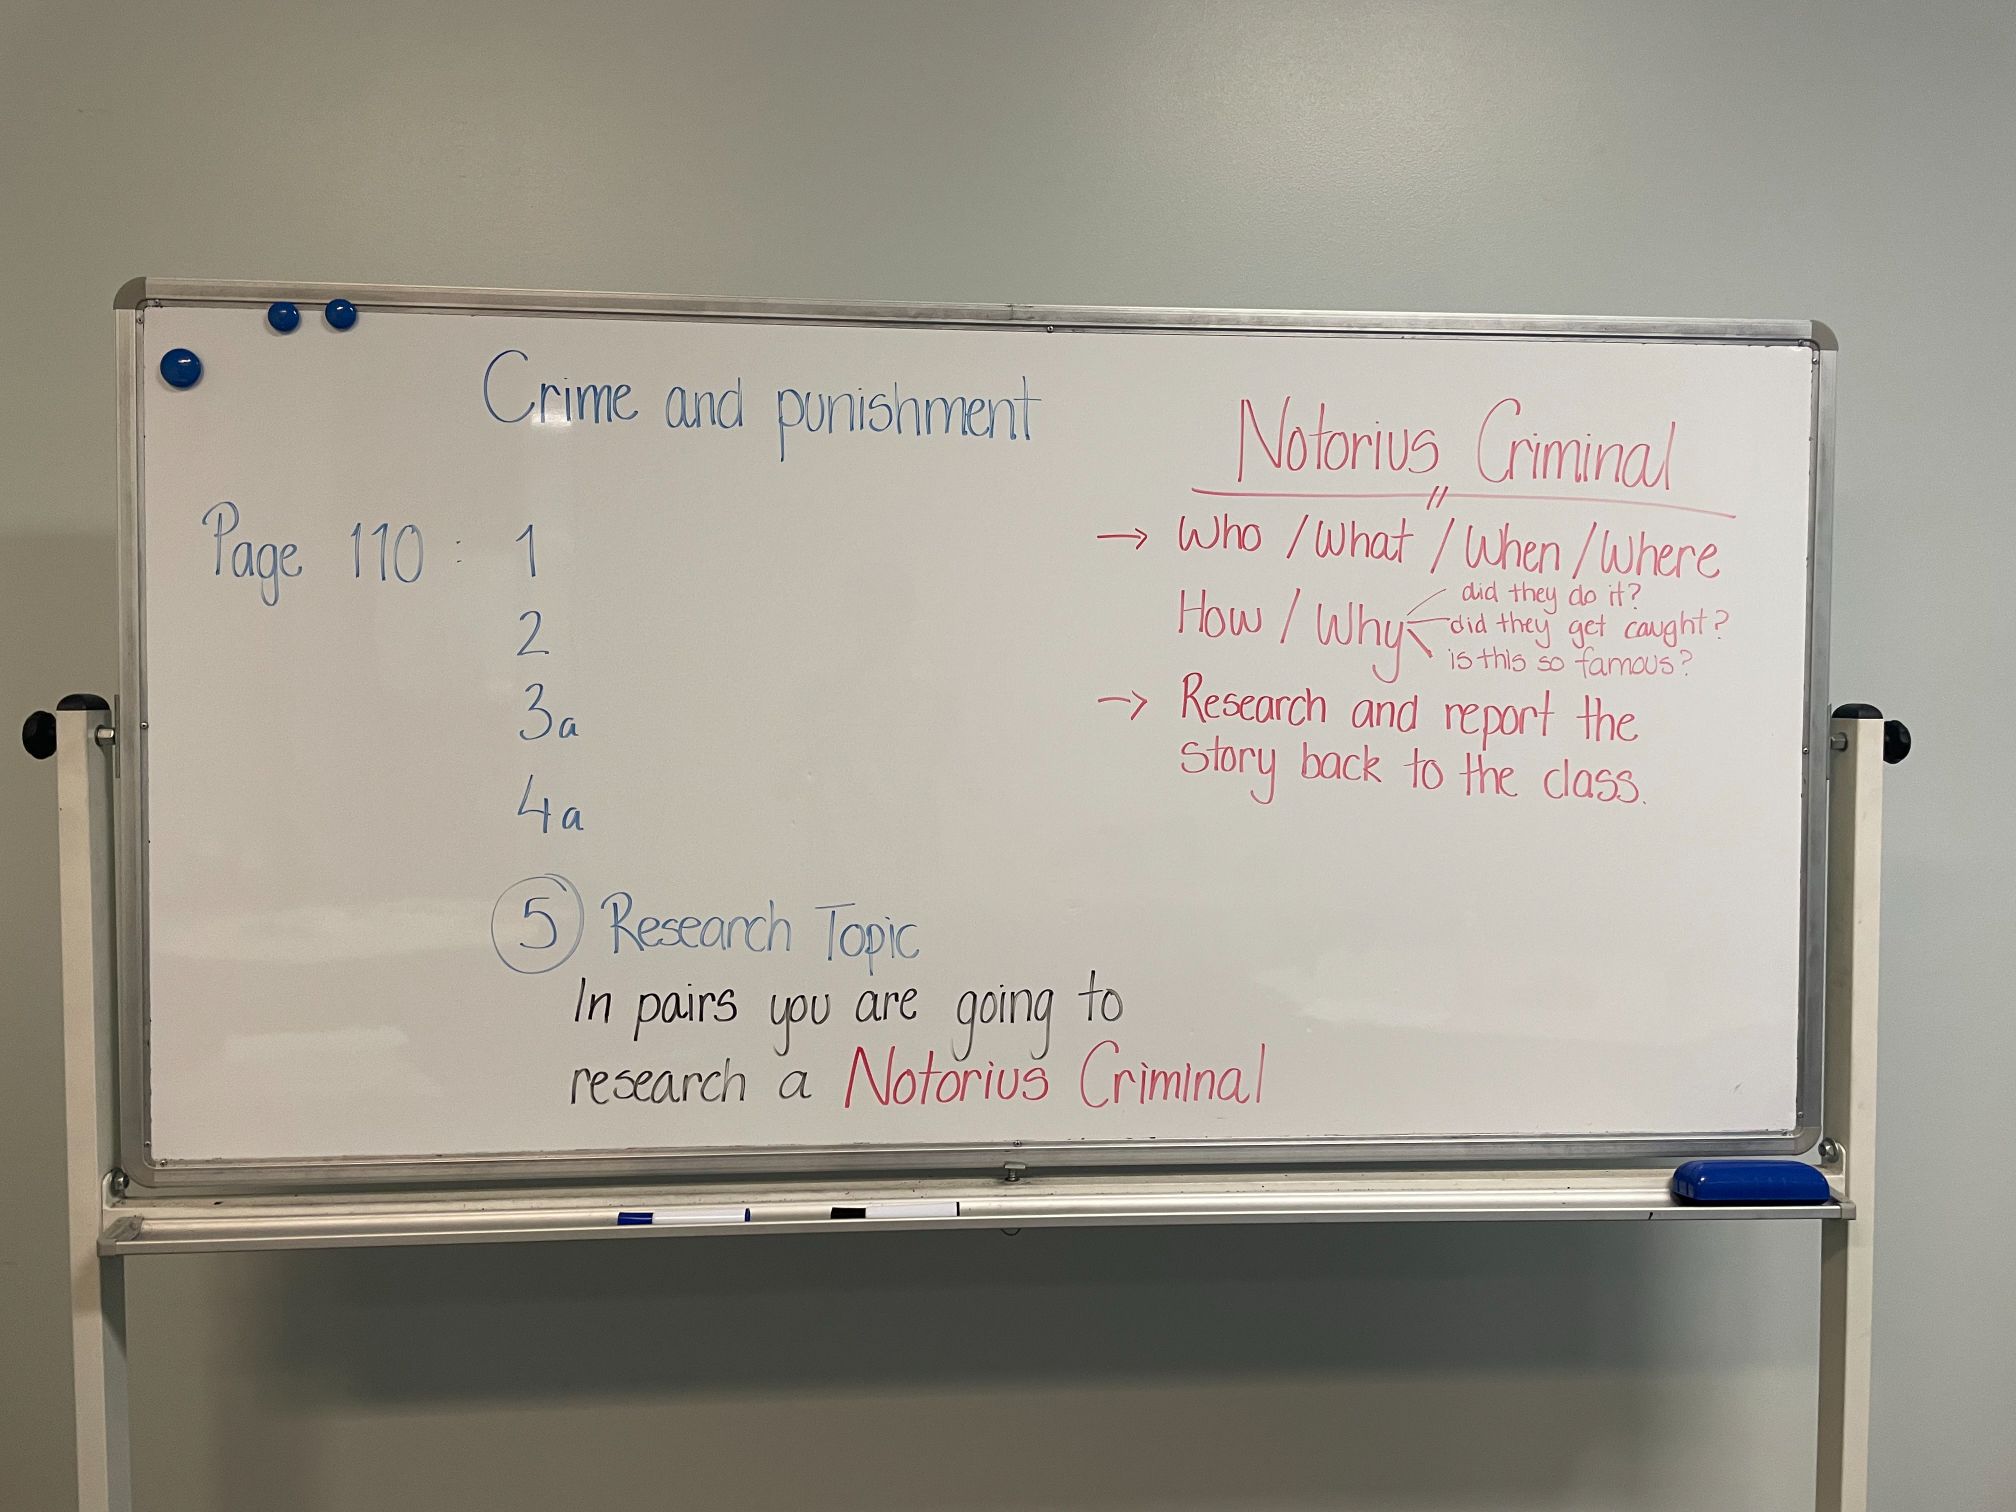 Crime and punishment
Page 110 : 1
2
3a
4a
5 Research Topic
In pairs you are going to
research a Notorius Criminal
Notorius Criminal
→ Who / What / When / Where
How / Why
did they do it?
did they get caught?
is this so famous?
→ Research and report the
story back to the class.